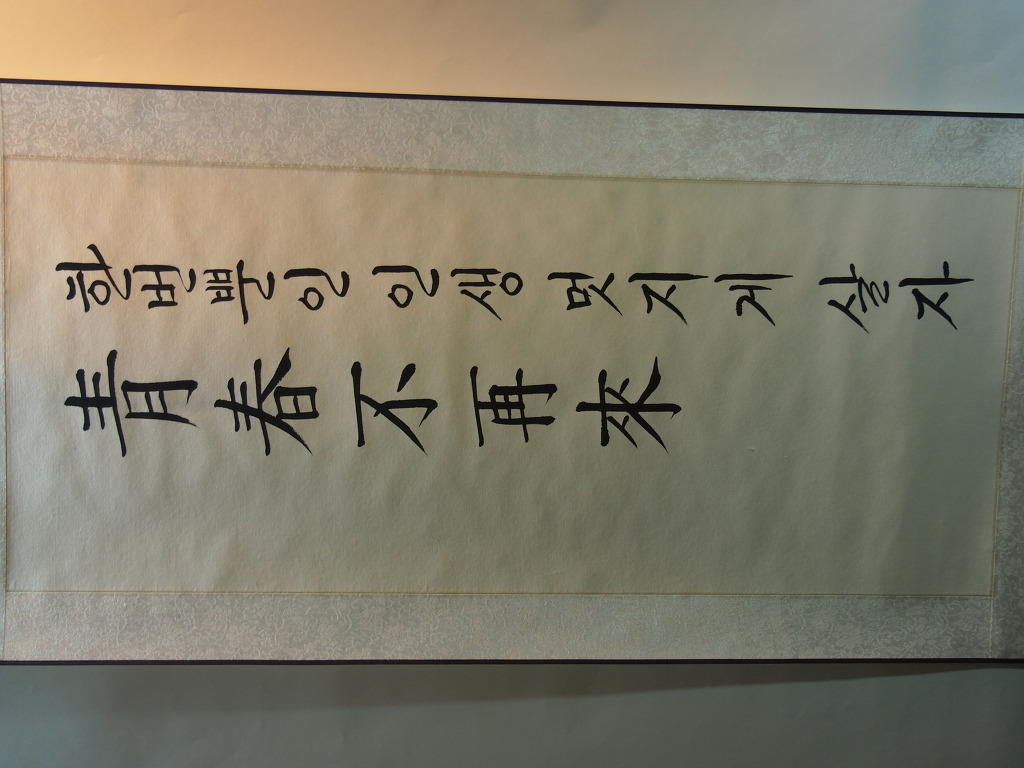 한번뿐인 인생 멋지게 살자
青春不再來